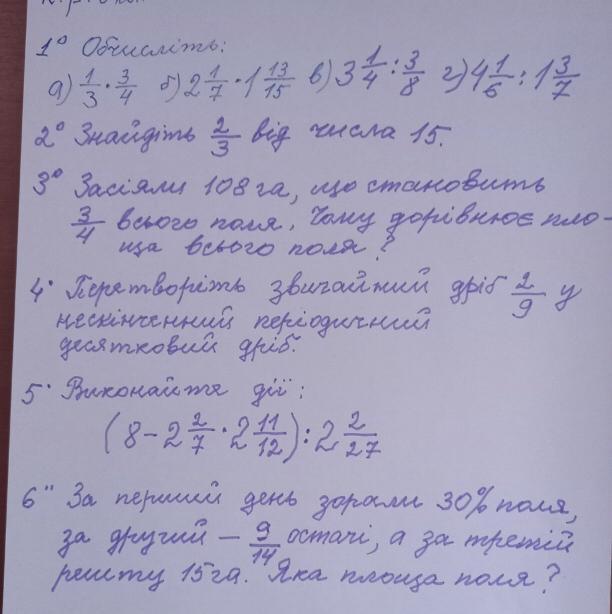 1° Обчисліть:
а) 1/3 · 3/4 б) 2 1/7 · 1 13/15 в) 3 1/4 : 3/8 г) 4 1/6 : 1 3/7
2° Знайдіть 2/3 від числа 15.
3° Засіяли 108 га, що становить
3/4 всього поля. Чому дорівнює пло-
ща всього поля?
4· Перетворіть звичайний дріб 2/9 у
нескінченний періодичний
десятковий дріб.
5· Виконайте дії:
(8 - 2 2/7 · 2 11/12) : 2 2/27
6·· За перший день зорали 30% поля,
за другий – 9/14 остачі, а за третій
решту 15 га. Яка площа поля?